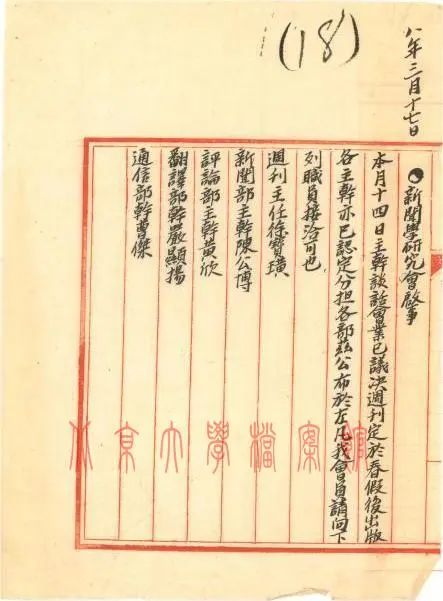 (18)
八年三月十七日
新聞學研究會啟事
本月十四日主幹談話會業已議決週刊定於春假後出版
各主幹亦已認定分担各部茲公布於左凡我會員請向下
列職員接洽可也
週刊主任徐寶璜
新聞部主幹陳公博
評論部主幹黃欣
翻譯部幹嚴顯揚
通信部幹曹傑
北京大學檔案館